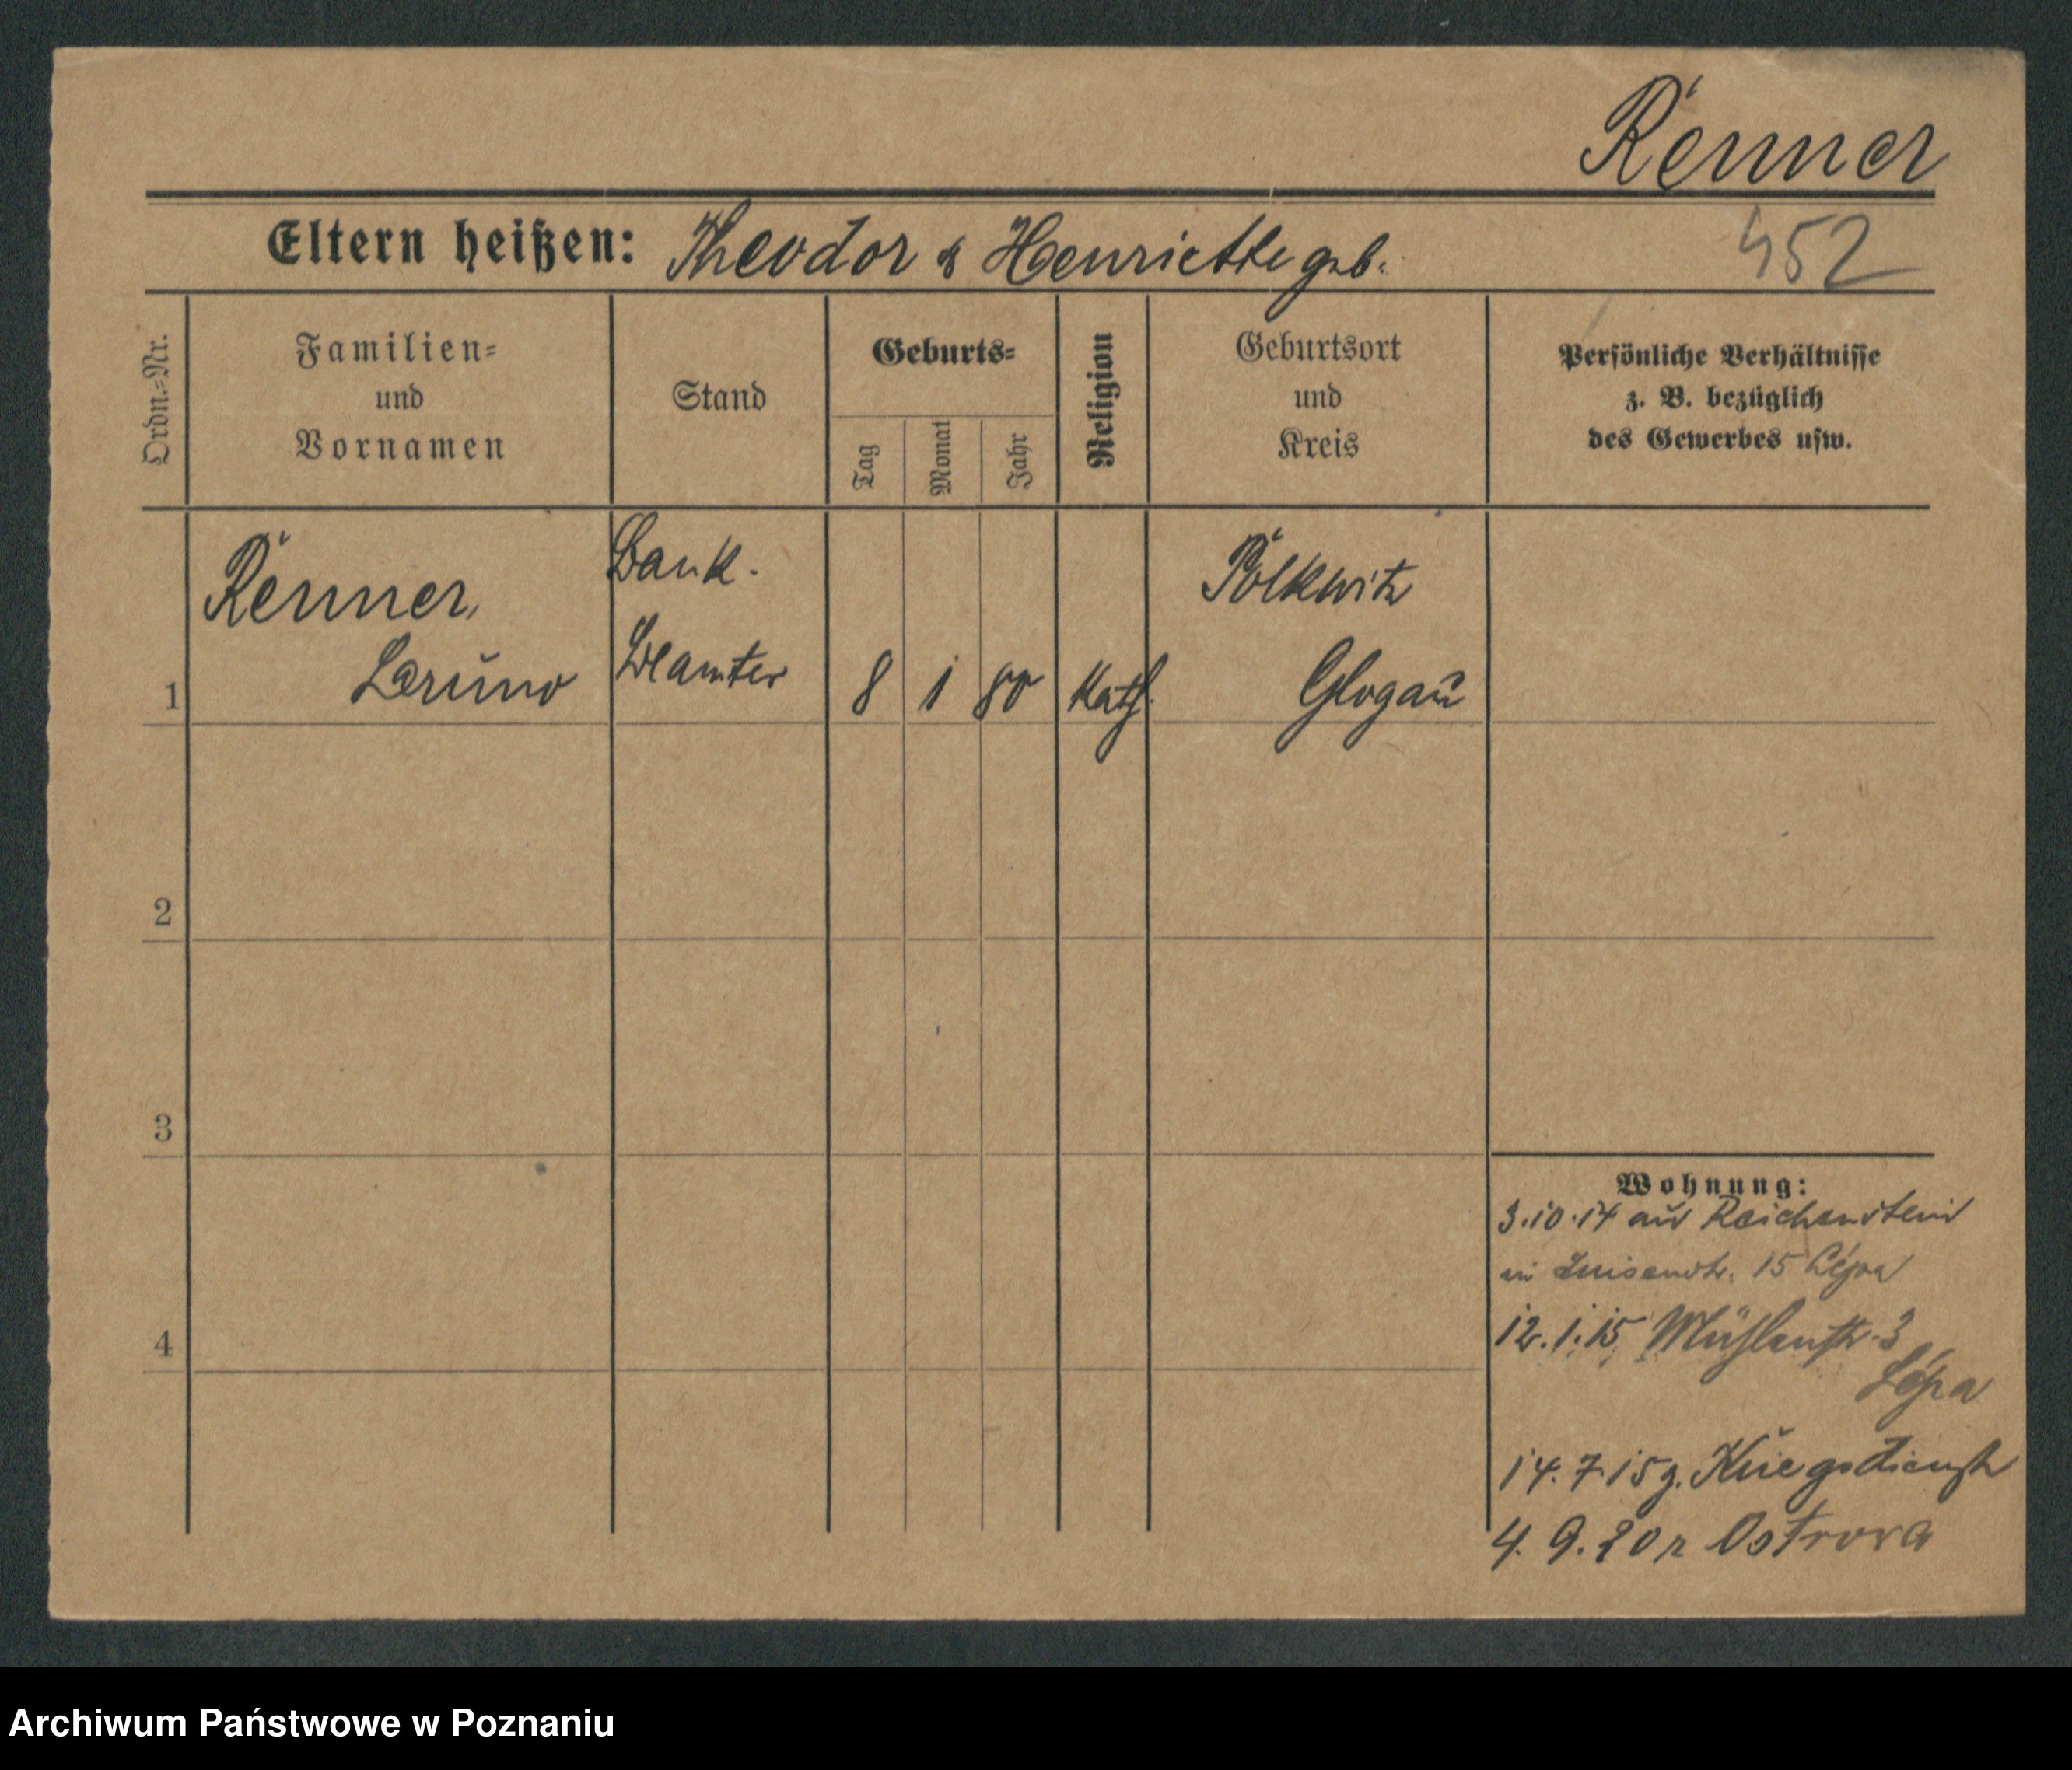 Renner
Eltern heißen: Theodor & Henriette geb.
452
Ordn.=Nr.
Familien=
und
Vornamen
Stand
Geburts=
Tag
Monat
Jahr
Religion
Geburtsort
und
Kreis
Persönliche Verhältnisse
z. B. bezüglich
des Gewerbes usw.
1
Renner,
Bruno
Bank-
Beamter
8 1 80 Kath.
Polkwitz
Glogau
2
3
4
Wohnung:
3.10.14 aus Reichenstein
in Luisenstr. 15
12.1.15 Mühlenstr. 3
14.7.15 z. Kriegsdienst
4.9.20 n Ostrova
Archiwum Państwowe w Poznaniu